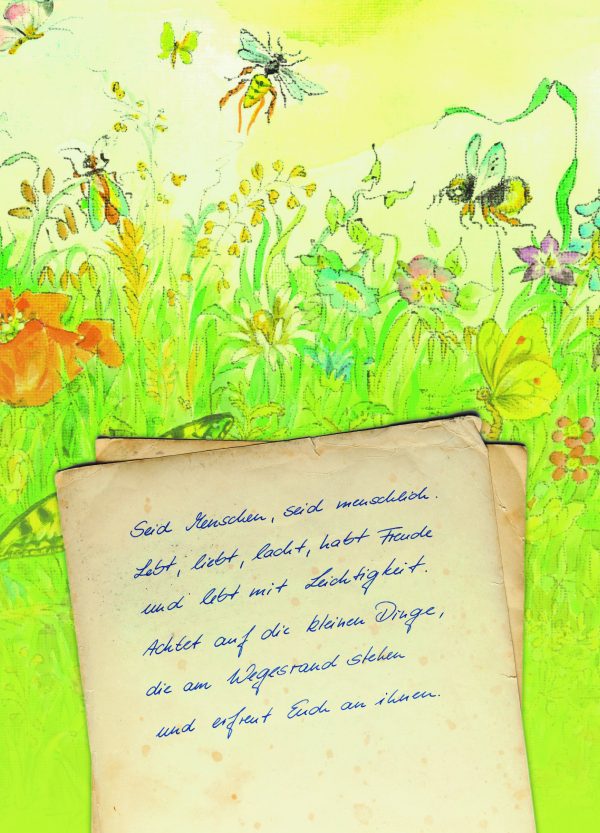 Seid Menschen, seid menschlich.
Lebt, liebt, lacht, habt Freude
und lebt mit Leichtigkeit.
Achtet auf die kleinen Dinge,
die am Wegesrand stehen
und erfreut Euch an ihnen.